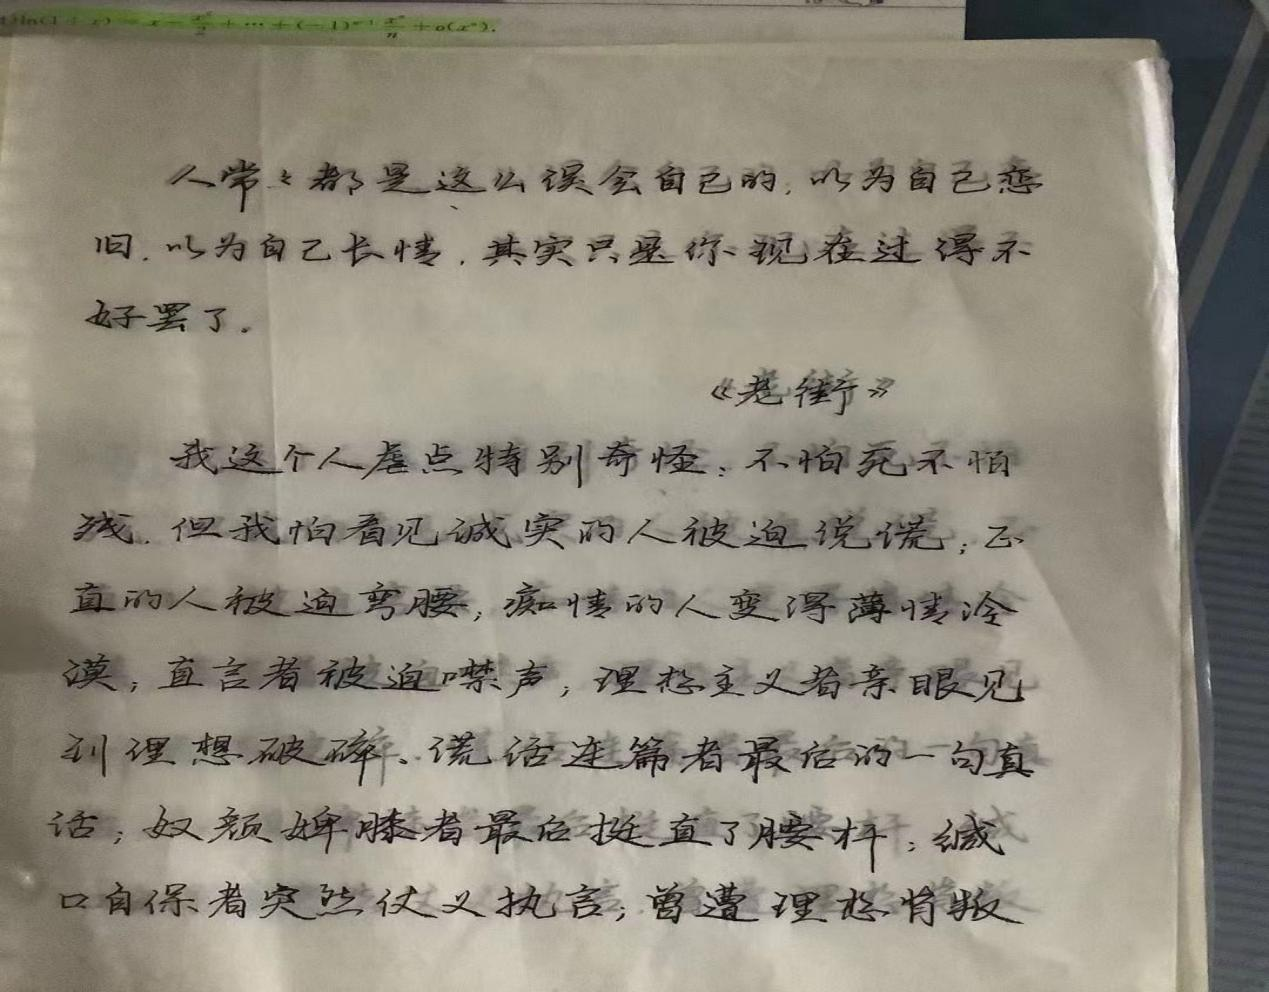 ln(1+x) = x − x²/2 + ⋯ + (−1)ⁿ⁻¹ xⁿ/n + o(xⁿ).
人常々都是这么误会自己的，以为自己恋
旧，以为自己长情，其实只是你现在过得不
好罢了。
《老街》
我这个人虐点特别奇怪：不怕死不怕
残，但我怕看见诚实的人被迫说谎；正
直的人被迫弯腰；痴情的人变得薄情冷
漠；直言者被迫噤声；理想主义者亲眼见
到理想破碎、谎话连篇者最后的一句真
话；奴颜婢膝者最后挺直了腰杆；缄
口自保者突然仗义执言；曾遭理想背叛